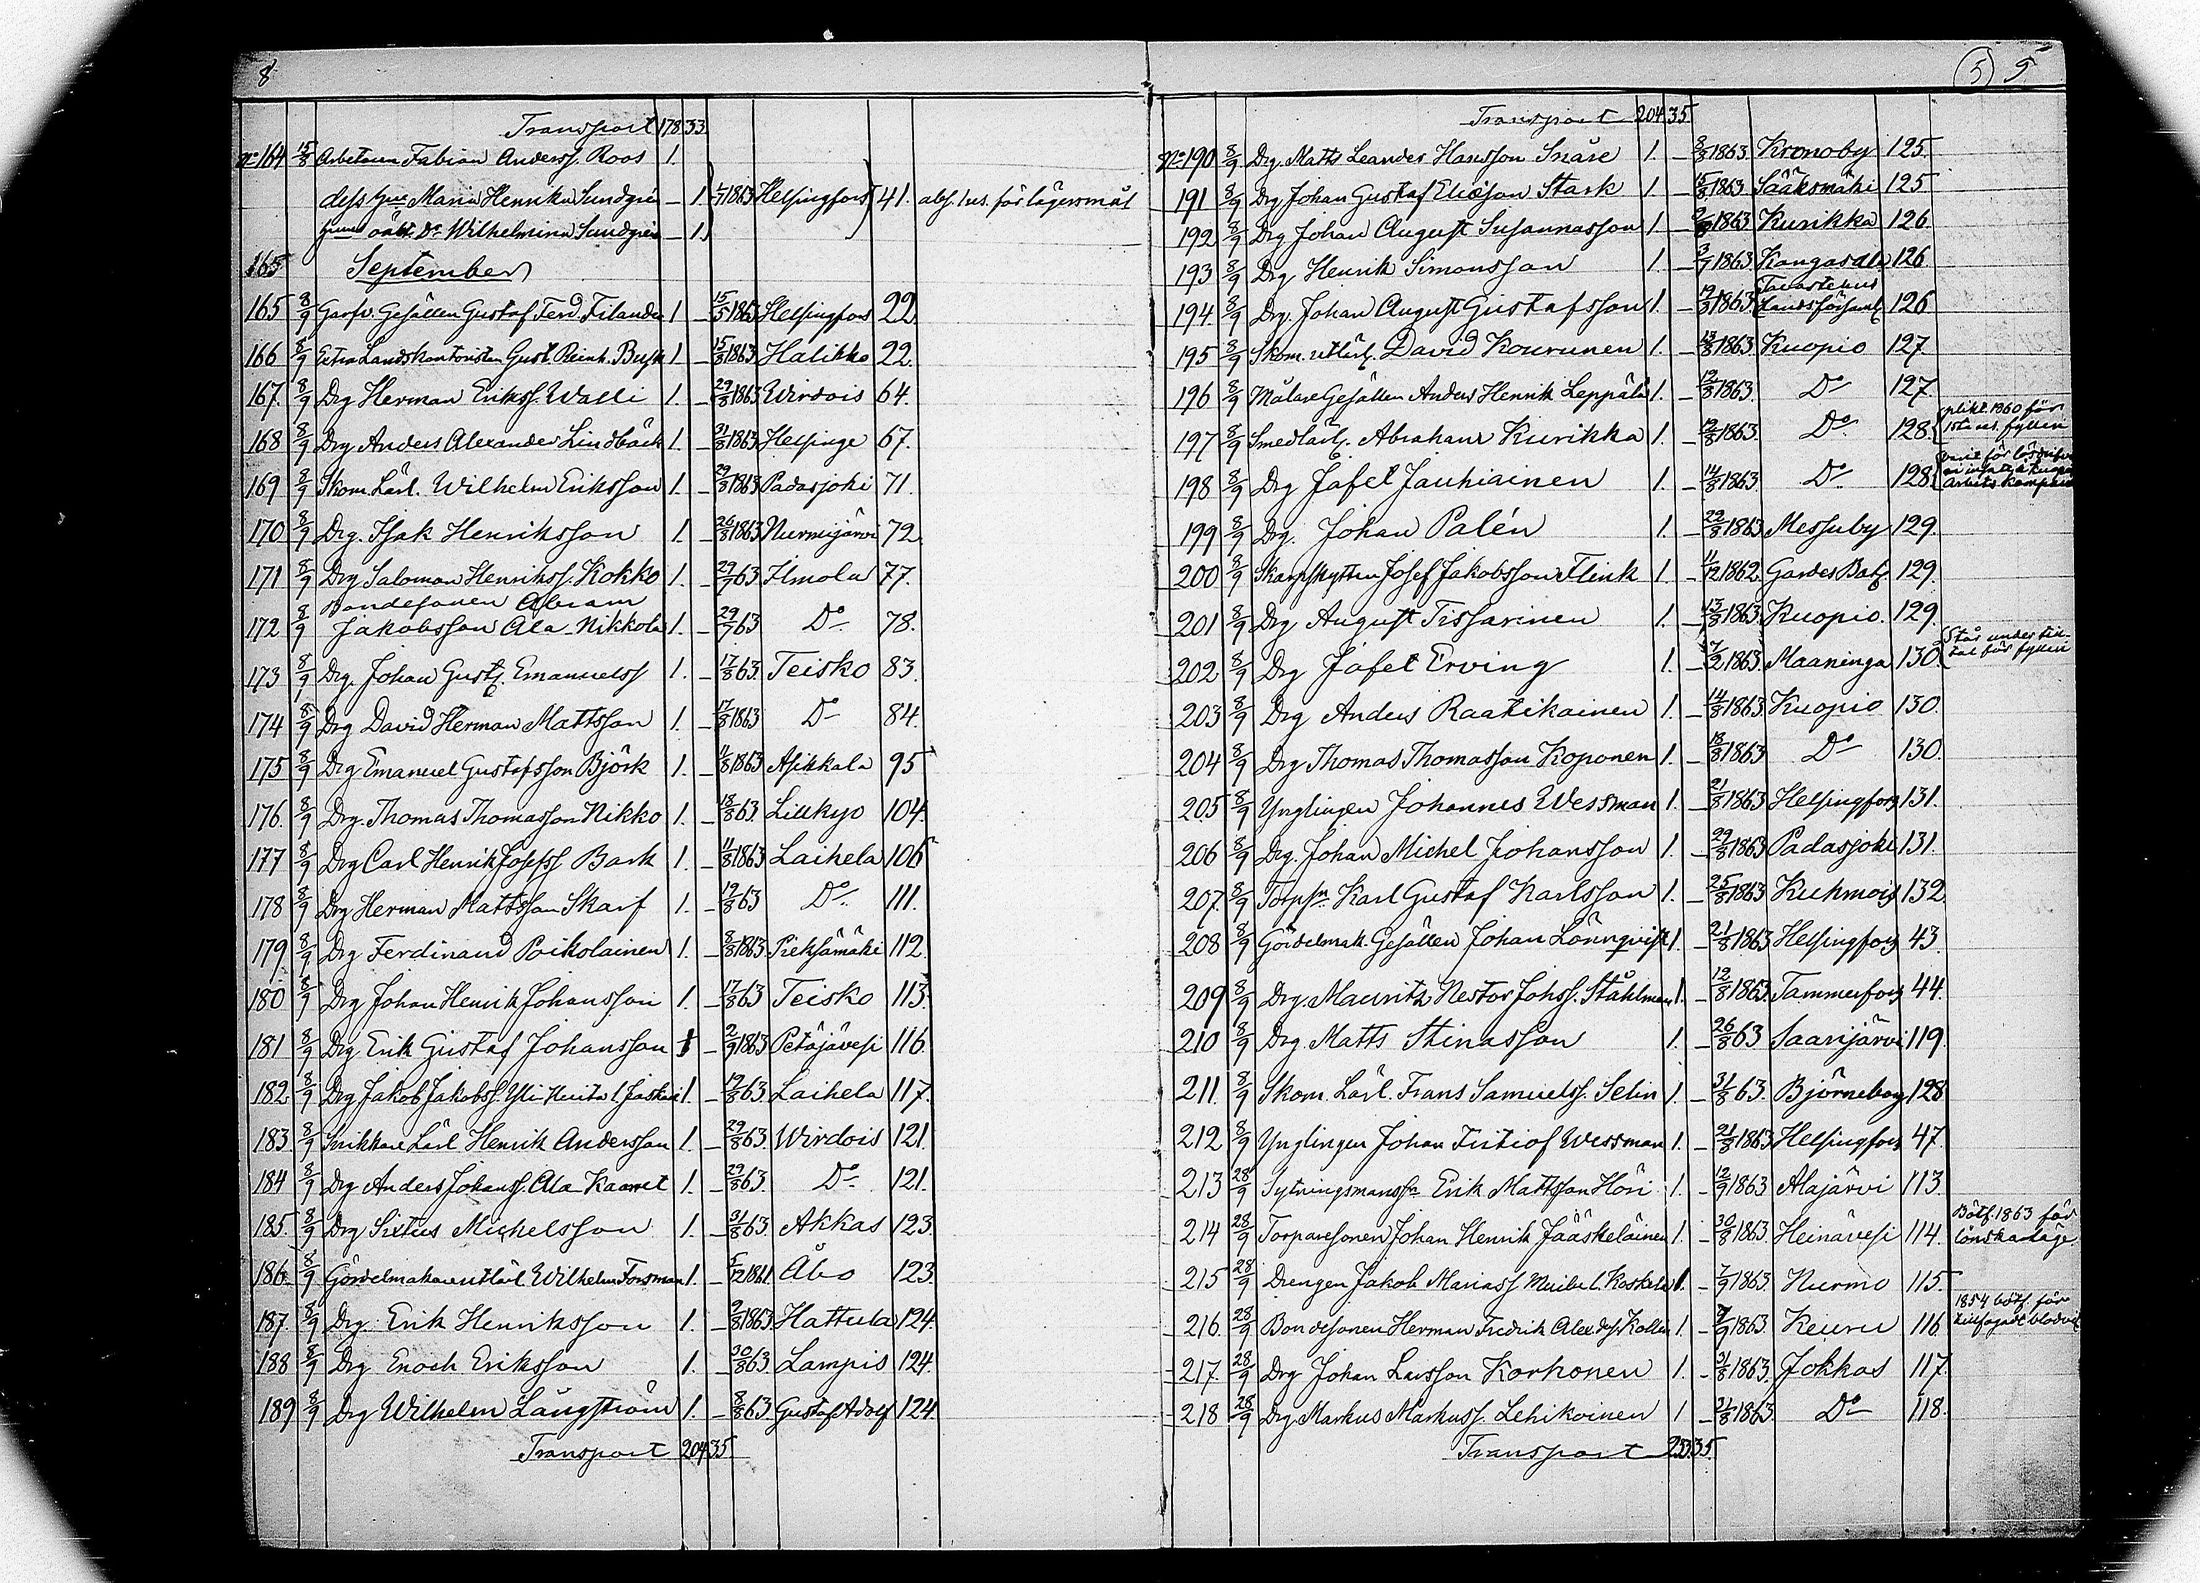 8
Transport 178 33.
No 164 15/8 Arbetaren Fabian Anderss. Roos 1.
dess hu Maria Henrika Sundgrén — 1. 1/7 1863 Helsingfors 41. abs. 1 us. för lägersmål
oäkt. Do Wilhelmina Sundgrén — 1.
165 September
165 8/9 Garfv. Gesällen Gustaf Ferd. Filander 1 — 15/5 1863 Helsingfors 22.
166 8/9 Extra Landskontoristen Gust. Reinh. Busk 1 — 15/8 1863 Halikko 22.
167. 8/9 Drg Herman Erikss. Walli 1. — 29/8 1863 Wirdois 64.
168 8/9 Drg Anders Alexander Lindbäck 1. — 31/8 1863 Helsinge 67.
169 8/9 Skom. Lärl. Wilhelm Eriksson 1. — 29/8 1863 Padasjoki 71.
170 8/9 Drg. Isak Henriksson 1. — 26/8 1863 Nurmijärvi 72.
171 8/9 Drg Salomon Henrikss. Kokko 1. — 29/7 63 Ilmola 77.
Bondesonen Abram
172 8/9 Jakobsson Ala-Nikkola 1. — 29/7 63 Do 78.
173 8/9 Drg. Johan Gust. Emanuelss 1. — 17/8 63. Teisko 83.
174 8/9 Drg David Herman Mattsson 1. — 17/8 1863 Do 84.
175 8/9 Drg Emanuel Gustafsson Björk 1. — 11/8 1863 Asikkala 95
176. 8/9 Drg. Thomas Thomasson Nikko 1. — 18/8 63. Lillkyro 104.
177 8/9 Drg Carl Henrik Josefss Bark 1. — 11/8 1863 Laihela 106
178 8/9 Drg Herman Mattsson Skarf 1. — 19/8 63 Do 111.
179. 8/9 Drg Ferdinand Poikolainen 1. — 8/8 1863 Pieksämäki 112.
180 8/9 Drg Johan Henrik Johansson 1. — 17/8 63 Teisko 113.
181 8/9 Drg Erik Gustaf Johansson 1 — 2/9 1863 Petäjävesi 116.
182. 8/9 Drg Jakob Jakobss. Yli- 1. — 19/8 63. Laihela 117.
183. 8/9 Snikkare Lärl Henrik Andersson 1. — 29/8 63. Wirdois 121.
184 8/9 Drg Anders Johanss. Ala Kaaret 1. — 29/8 63. Do 121.
185. 8/9 Drg Sixtus Michelsson 1. — 31/8 63. Akkas 123.
186. 8/9 Gördelmakareutlärl Wilhelm Forsman 1. — 5/12 1861 Åbo 123.
187. 8/9 Drg. Erik Henriksson 1. — 9/8 1863. Hattula 124.
188 8/9 Drg Enoch Eriksson 1. — 30/8 63. Lampis 124.
189 8/9 Drg Wilhelm Långström 1. — 8/8 63 Gustaf Adolf 124.
Transport 204 35
5 5
Transport 204 35
No 190 8/9 Drg. Matts Leander Hansson Snåre 1. — 3/8 1863. Kronoby 125.
191 8/9 Drg Johan Gustaf Eliasson Stark 1. — 15/8 1863. Sääksmäki 125
192 8/9 Drg Johan August Susannasson 1 — 1863 Kurikka 126
193 8/9 Drg Henrik Simonsson 1. — 3/7 1863 Kangasala 126.
194. 8/9 Drg. Johan August Gustafsson 1. — 19/8 1863. Tavastehus Landsförsaml. 126
195 8/9 Skom. utlärl. David Kourunen 1. — 13/8 1863. Kuopio 127.
196 8/9 Målare Gesällen Anders Henrik Leppälä 1. — 12/8 1863. Do 127.
197 8/9 Smedlärl. Abraham Kurikka 1. — 12/8 1863. Do 128. plikt. 1860 för 1sta res. fylleri
198 8/9 Drg Jafet Jauhiainen 1. — 14/8 1863. Do 128
199 8/9 Drg. Johan Palén 1. — 22/8 1863. Messuby 129.
200 8/9 Skarpskytten Josef Jakobsson Flink 1. — 11/12 1862. Gardes Bat. 129.
201 8/9 Drg August Tissarinen 1. — 13/8 1863. Kuopio. 129.
202 8/9 Drg Jafet Erving 1. — 7/2 1863. Maaninga 130. Står under till- tal för fylleri
203 8/9 Drg Anders Raatikainen 1. — 14/8 1863. Kuopio 130.
204 8/9 Drg Thomas Thomasson Koponen 1. — 18/8 1863 Do 130.
205 8/9 Ynglingen Johannes Wessman 1. — 21/8 1863 Helsingfors 131.
206 8/9 Drg. Johan Michel Johansson 1. — 29/8 1863 Padasjoki 131.
207. 8/9 Torpsn Karl Gustaf Karlsson 1. — 25/8 1863 Kuhmois 132
208 8/9 Gördelmak. Gesällen Johan Lönnqvist 1. — 21/8 1863. Helsingfors 43
209 8/9 Drg. Mauritz Nestor Johss. Ståhlman 1. — 12/8 1863. Tammerfors 44.
210 8/9 Drg. Matts Stinasson 1. — 26/8 63 Saarijärvi 119
211. 8/9 Skom. Lärl. Frans Samuelss. Selin 1. — 31/8 63. Björneborg 128
212 8/9 Ynglingen Johan Fritiof Wessman 1. — 21/8 1863 Helsingfors 47.
213 28/9 Sytningsmanssn Erik Mattsson Höri 1. — 12/9 1863 Alajärvi 113.
214 28/9 Torparesonen Johan Henrik Jääskeläinen 1. — 30/8 1863. Heinävesi 114. Bötf. 1863 för lönskaläge.
215 28/9 Drengen Jakob Mariass. Koskela 1. — 7/9 1863. Nurmo 115.
216. 28/9 Bondesonen Herman Fredrik Alexdss. Kollin 1. — 9/9 1863. Keuru 116. 1854 bötf. för tillfogadt blodvite
217. 28/9 Drg Johan Larsson Korhonen 1. — 31/8 1863. Jokkas 117.
218 28/9 Drg Markus Markuss. Lehikoinen 1 — 21/8 1863. Do 118.
Transport 233 35.